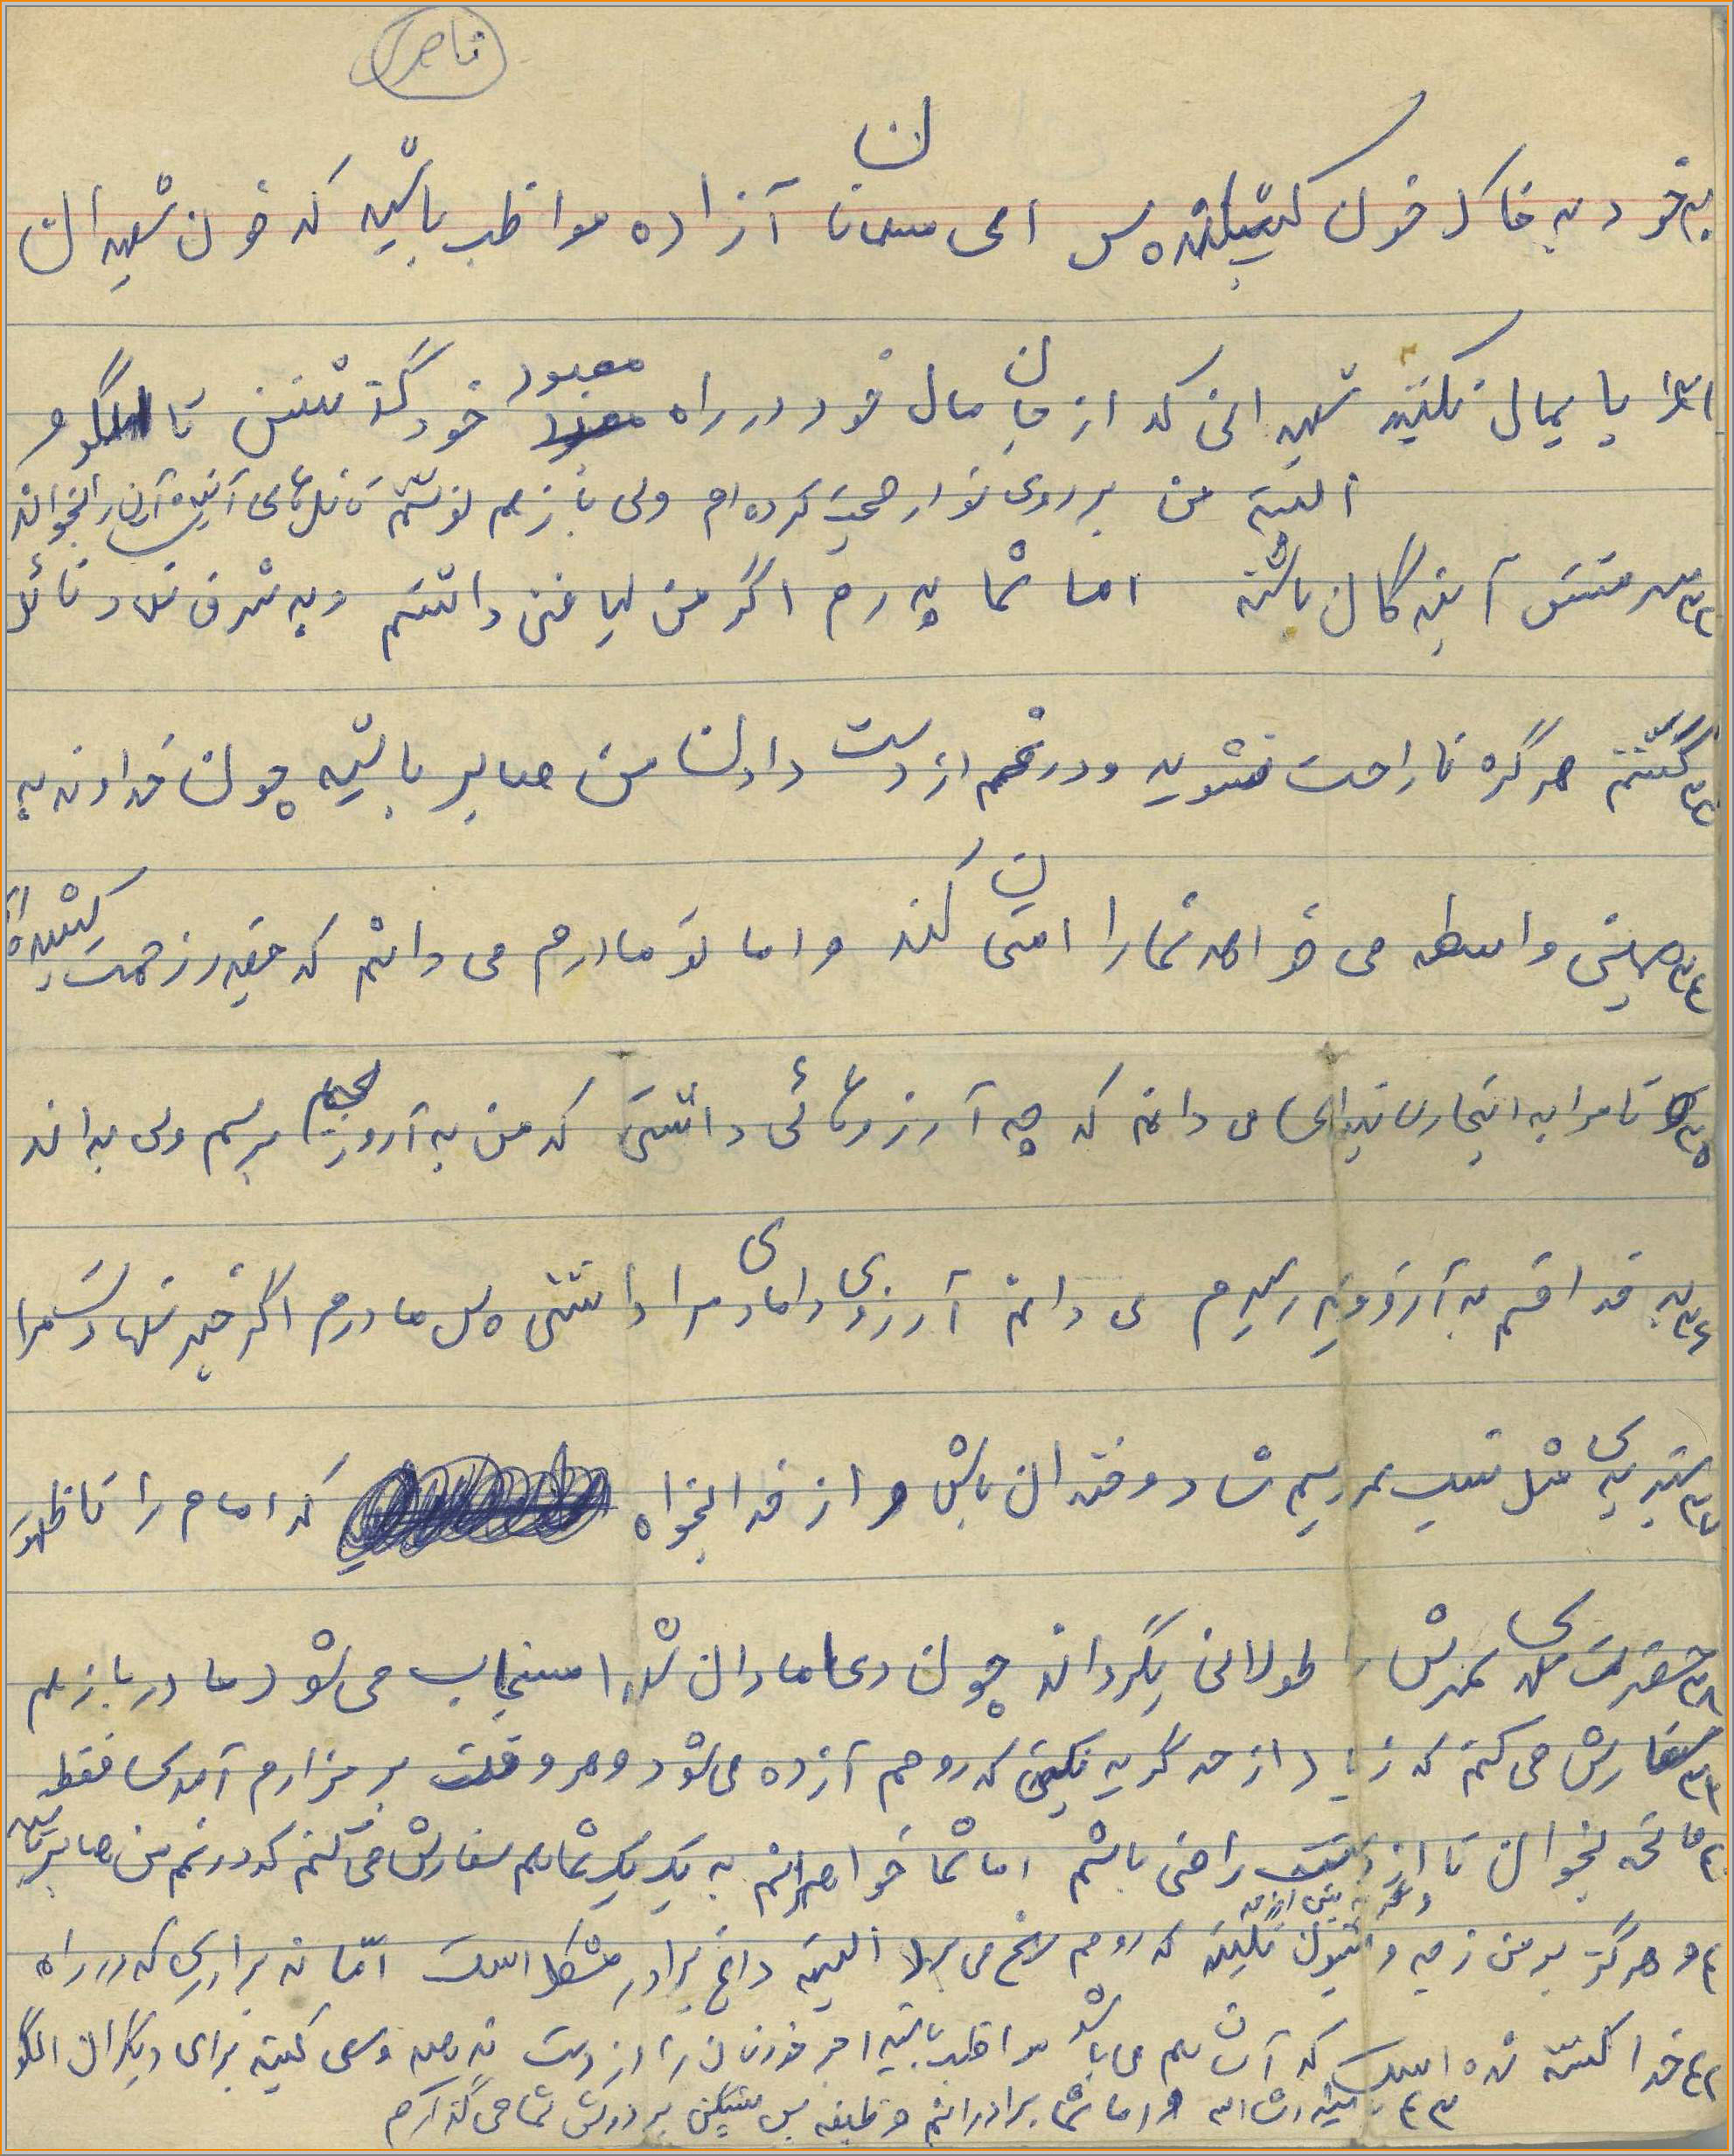 ناصر
به خود به خاک خون کشیده پس ای انسان آزاده مواظب باشید که خون شهیدان
۳۱ را پایمال نکنید شهیدانی که از جان مال خود در راه معبود خود گذشتن تا الگو و
البته من بر روی نوار صحبت کرده‌ام ولی باز هم نوشتم تا نسلهای آینده آن را بخوانند
۳۲ سرمشق آیندگان باشند اما شما پدرم اگر من لیاقتی داشتم و به شرف شهادت نائل
۳۳ گشتم هرگز ناراحت نشوید و در غم از دست دادن من صابر باشید چون خداوند به
۳۴ همین واسطه می خواهد شما را امتحان کند و اما تو مادرم می دانم که چقدر زحمت کشیده‌ای
۳۵ تا مرا به اینجا رسانیدی می دانم که چه آرزوهائی داشتی که من به آرزویم برسم ولی بدانند
۳۶ به خدا قسم به آرزویم رسیدم می دانم آرزوی دامادی مرا داشتی پس مادرم اگر خبر شهادت مرا
۳۷ شنیدی مثل شب عروسیم شاد و خندان باش و از خدا بخواه که امام را تا ظهور
۳۸ حضرت مهدی عمرش را طولانی بگرداند چون دعا مادران شهدا مستجاب می شود مادر باز هم
۳۹ سفارش می کنم که زیاد از حد گریه نکنی که روحم آزده می شود و هر وقت بر مزارم آمدی فقط
۴۰ فاتحه بخوان تا از دستت راضی باشم اما شما خواهرانم به یک یک شما هم سفارش می کنم که در غم من صابر باشید
و گریه بیش از حد
۴۱ و هرگز بر من زجه و شیون نکنید که روحم رنج می برد البته داغ برادر مشکل است امّا نه برادری که در راه
۴۲ خدا کشته شده است که آسان هم می باشد مواظب باشید اجر خودتان را از دست ندهید و سعی کنید برای دیگران الگو
۴۳ باشید انشاءاله و اما شما برادرانم وظیفه بس سنگین بر دوش شما می گذارم